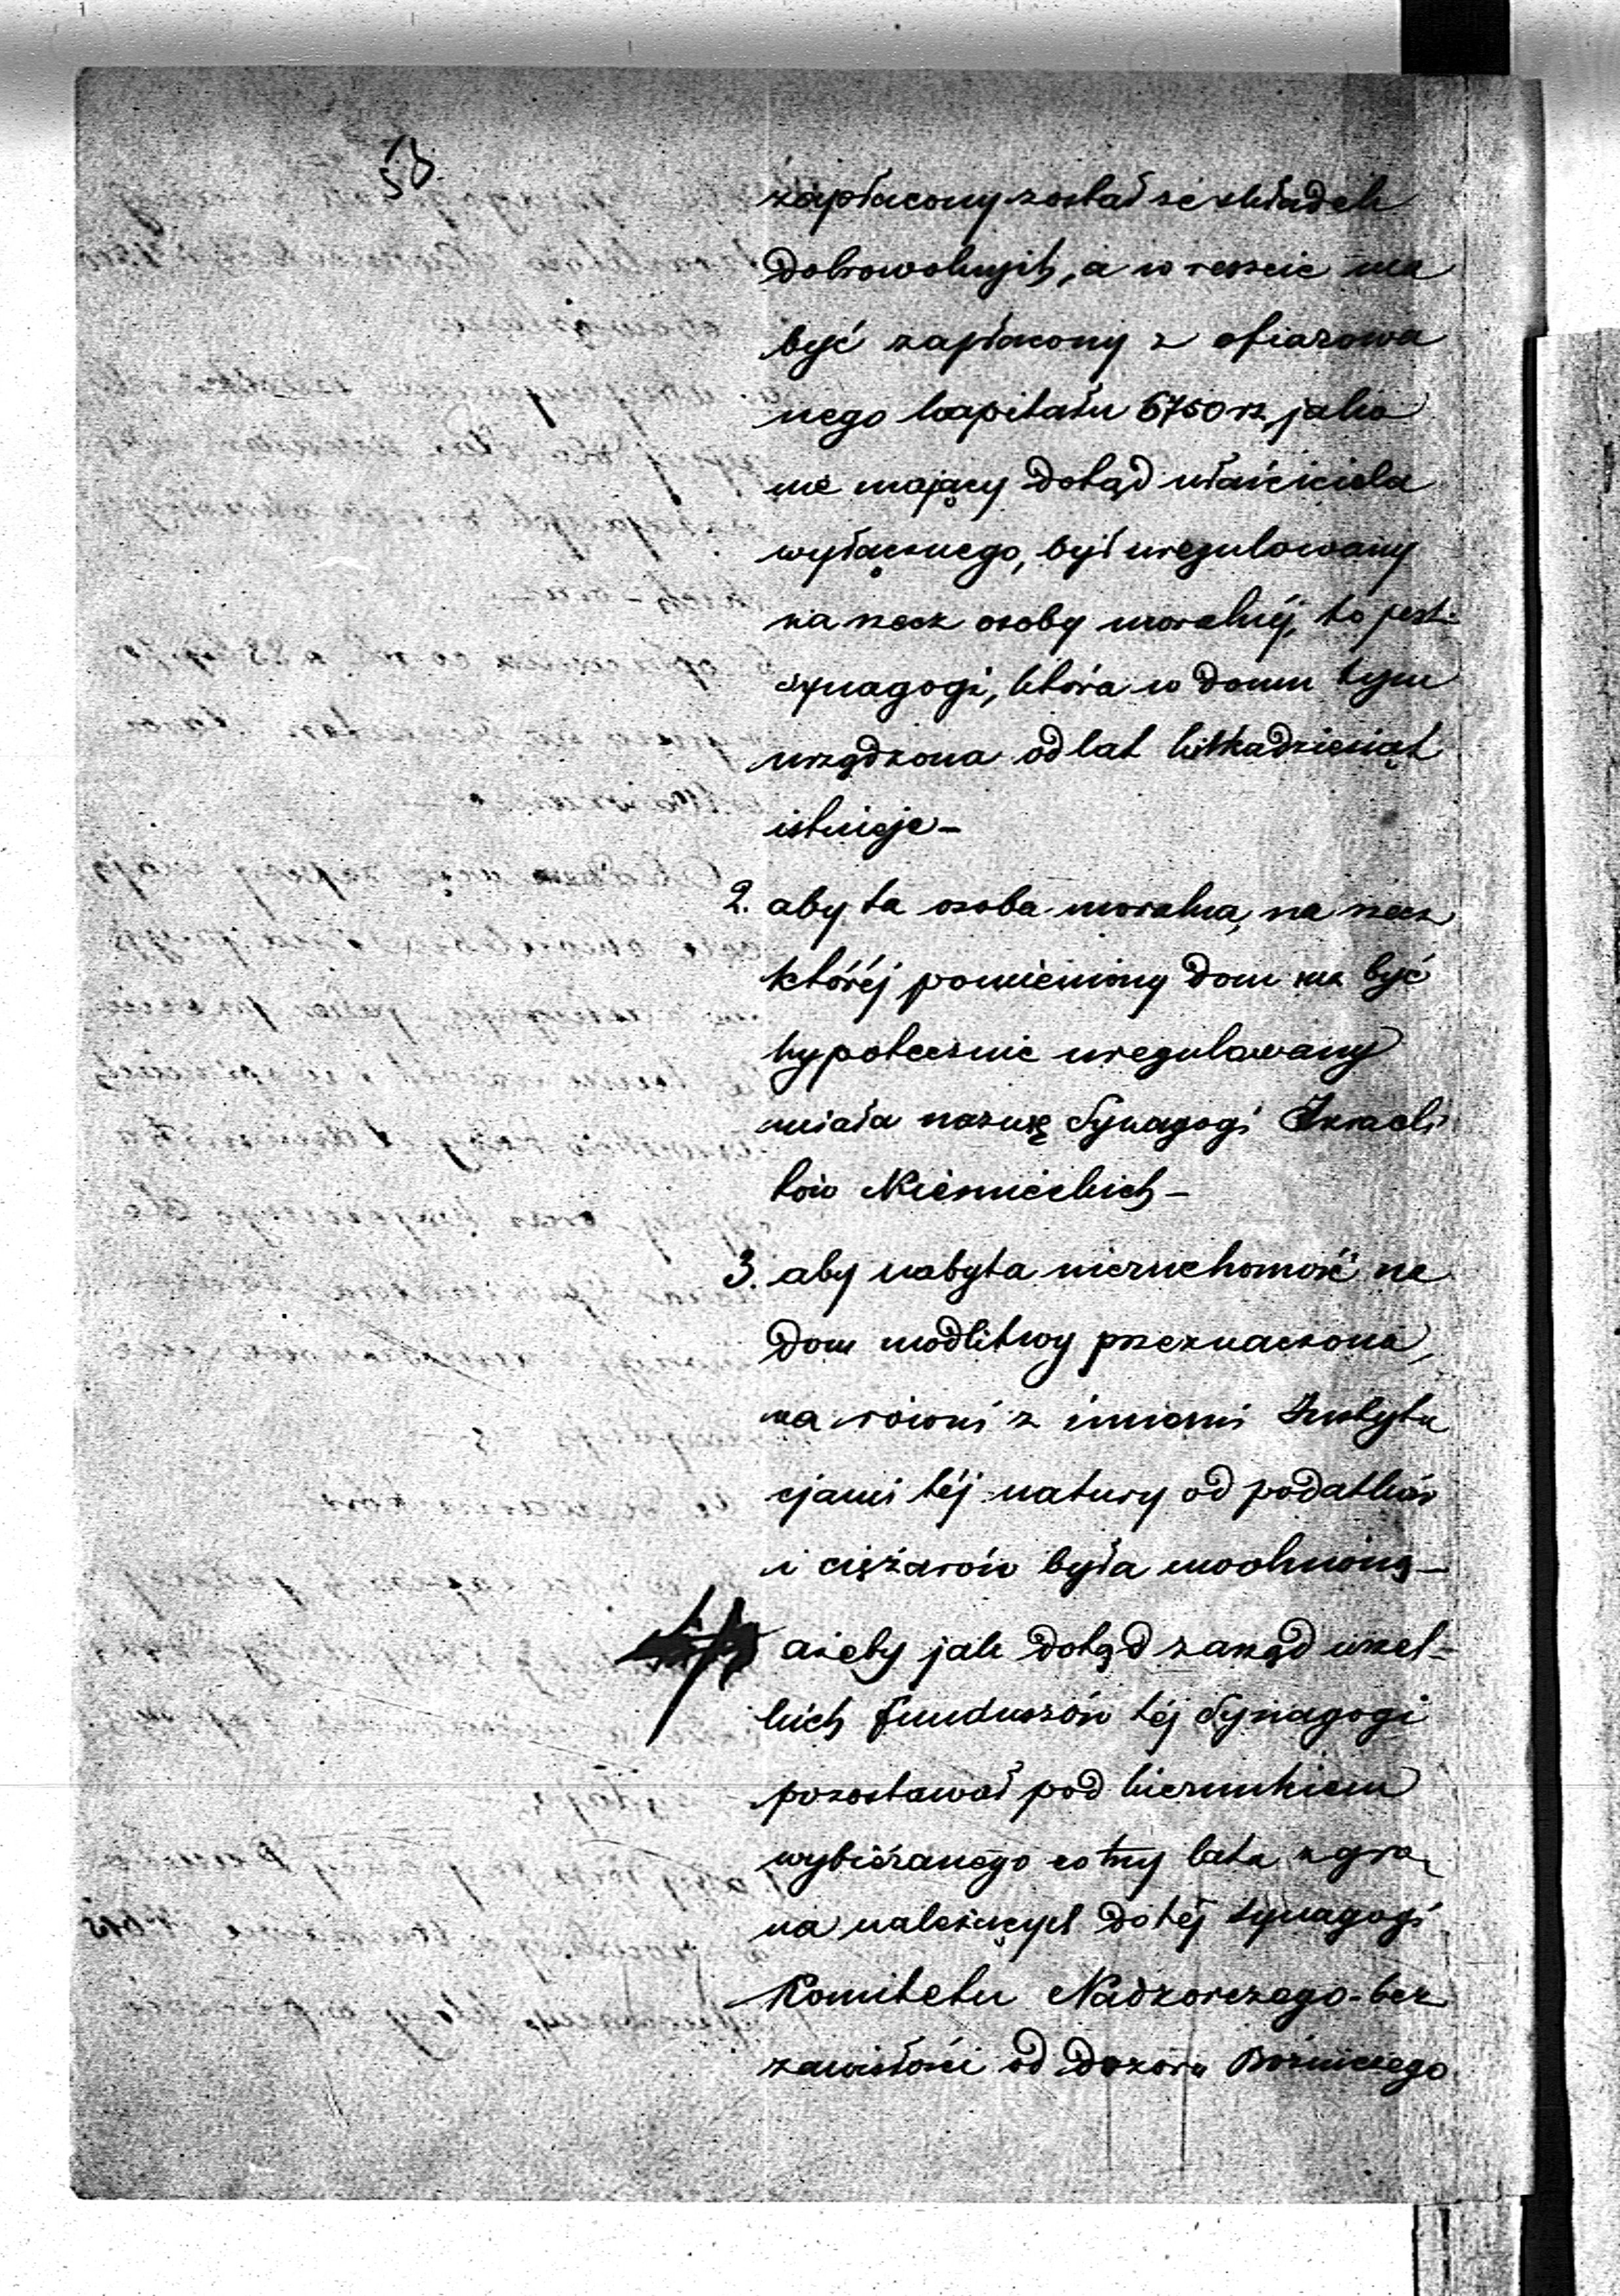 58
zapłacony został ze składek
dobrowolnych, a w reszcie ma
być zapłacony z ofiarowa
nego kapitału 6750 rs, jako
nie mający dotąd właściciela
wyłącznego, był uregulowany
na rzecz osoby moralnéj, to jest:
synagogi, która w domu tym
urządzona od lat kilkadziesiąt
istnieje –
2. aby ta osoba moralna, na rzecz
któréj pomieniony dom ma być
hypotecznie uregulowany
miała nazwę Synagogi Izraeli
tów Niemieckich –
3. aby nabyta nieruchomość na
dom modlitwy przeznaczona,
na równi z innemi Instytu
cjami téj natury od podatków
i ciężarów była uwolnioną –
ażeby jak dotąd zarząd wszel-
kich funduszów téj Synagogi
pozostawał pod kierunkiem
wybieranego co trzy lata z gro
na należących do téj synagogi
Komitetu Nadzorczego - bez
zawisłości od Dozoru Bóżniczego